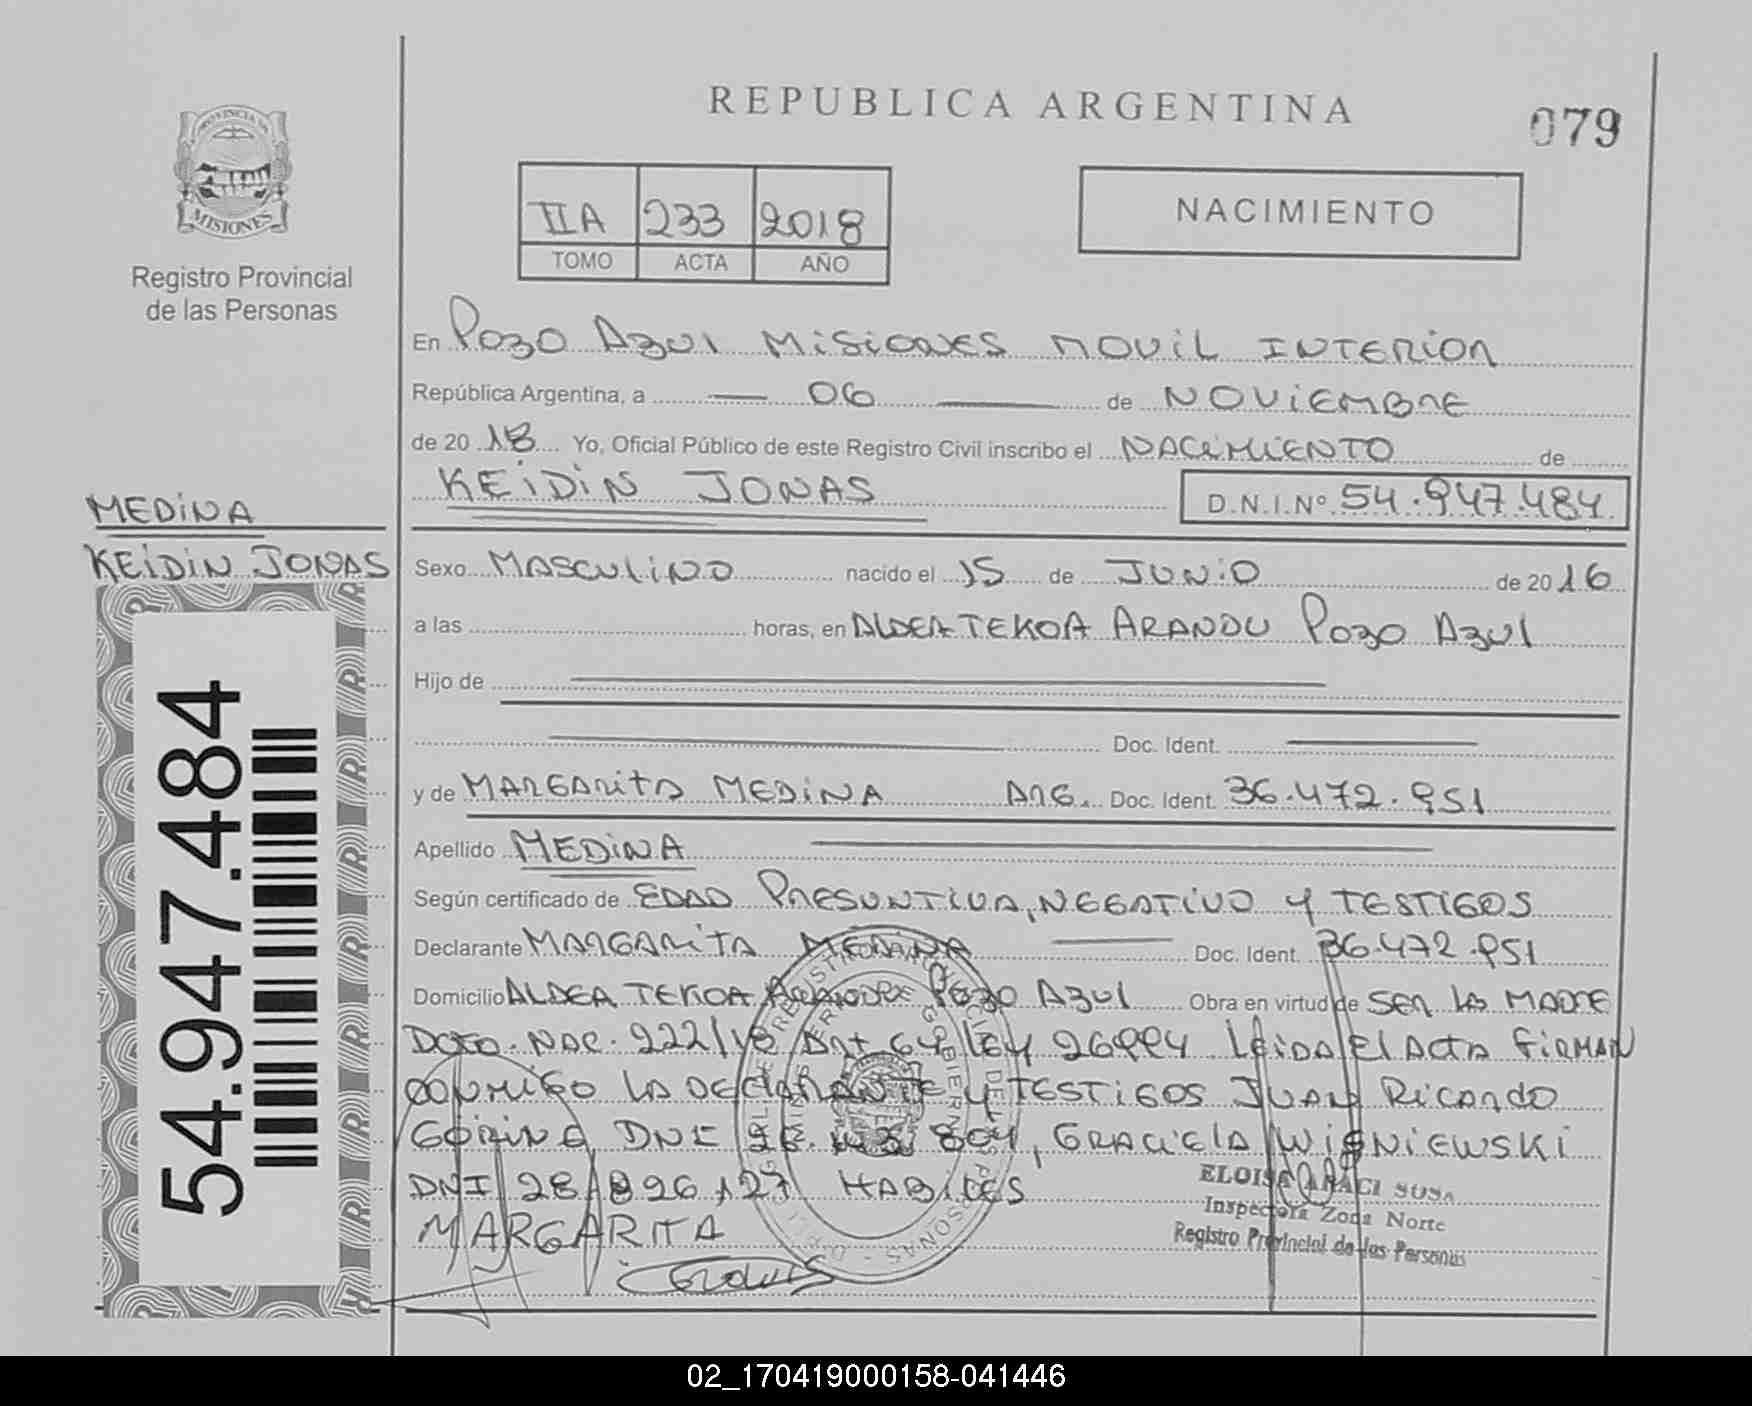 REPUBLICA ARGENTINA
079
PROVINCIA DE
MISIONES
Registro Provincial
de las Personas
IIA 233 2018
TOMO ACTA AÑO
NACIMIENTO
En Pozo Azul Misiones Movil Interior
República Argentina, a — 06 — de Noviembre
de 20 18 Yo, Oficial Público de este Registro Civil inscribo el Nacimiento de
Keidin Jonas D.N.I.Nº 54.947.484
Medina
Keidin Jonas
Sexo Masculino nacido el 15 de Junio de 20 16
a las horas, en Aldea Tekoa Arandu Pozo Azul
Hijo de
Doc. Ident.
y de Margarita Medina Arg. Doc. Ident. 36.472.951
Apellido Medina
Según certificado de Edad Presuntiva, Negativo y Testigos
Declarante Margarita Medina Doc. Ident. 36.472.951
Domicilio Aldea Tekoa Arandu Pozo Azul Obra en virtud de ser la madre
Dcto. Nac. 222/18 Art 64 Ley 26994 Leida el Acta firman
conmigo la declarante y testigos Juan Ricardo
DNI 804, Graciela Wisniewski
DNI 28.826.127 Habiles
MARGARITA
ELOISA ARACI SOSA
Inspectora Zona Norte
Registro Provincial de las Personas
54.947.484
02_170419000158-041446